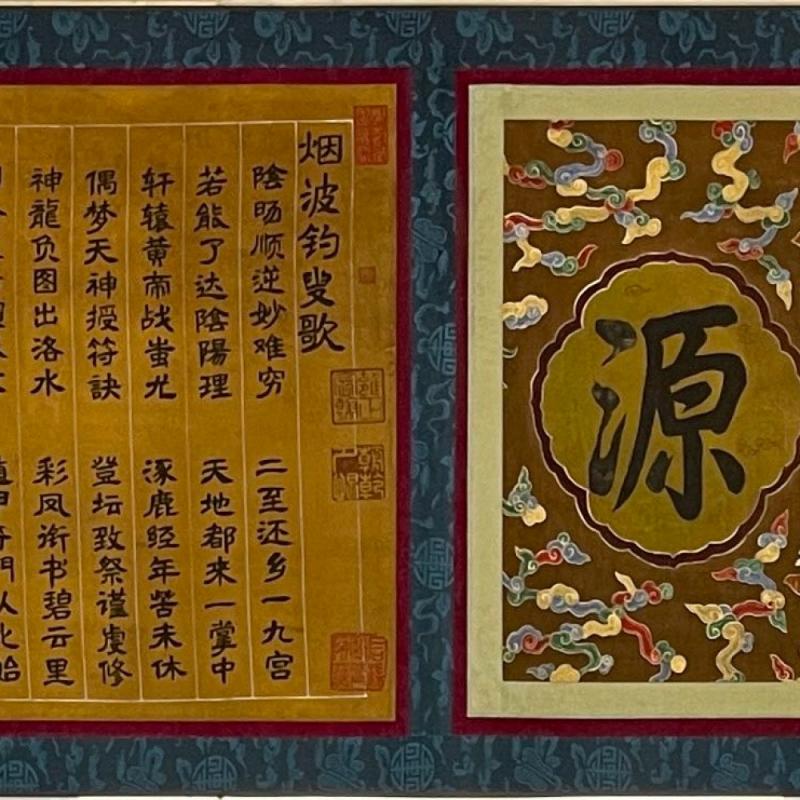 源
烟波钓叟歌
陰旸顺逆妙难穷 二至还乡一九宫
若能了达陰陽理 天地都来一掌中
轩辕黄帝战蚩尤 涿鹿经年苦未休
偶梦天神授符訣 登坛致祭谨虔修
神龍负图出洛水 彩凤衔书碧云里